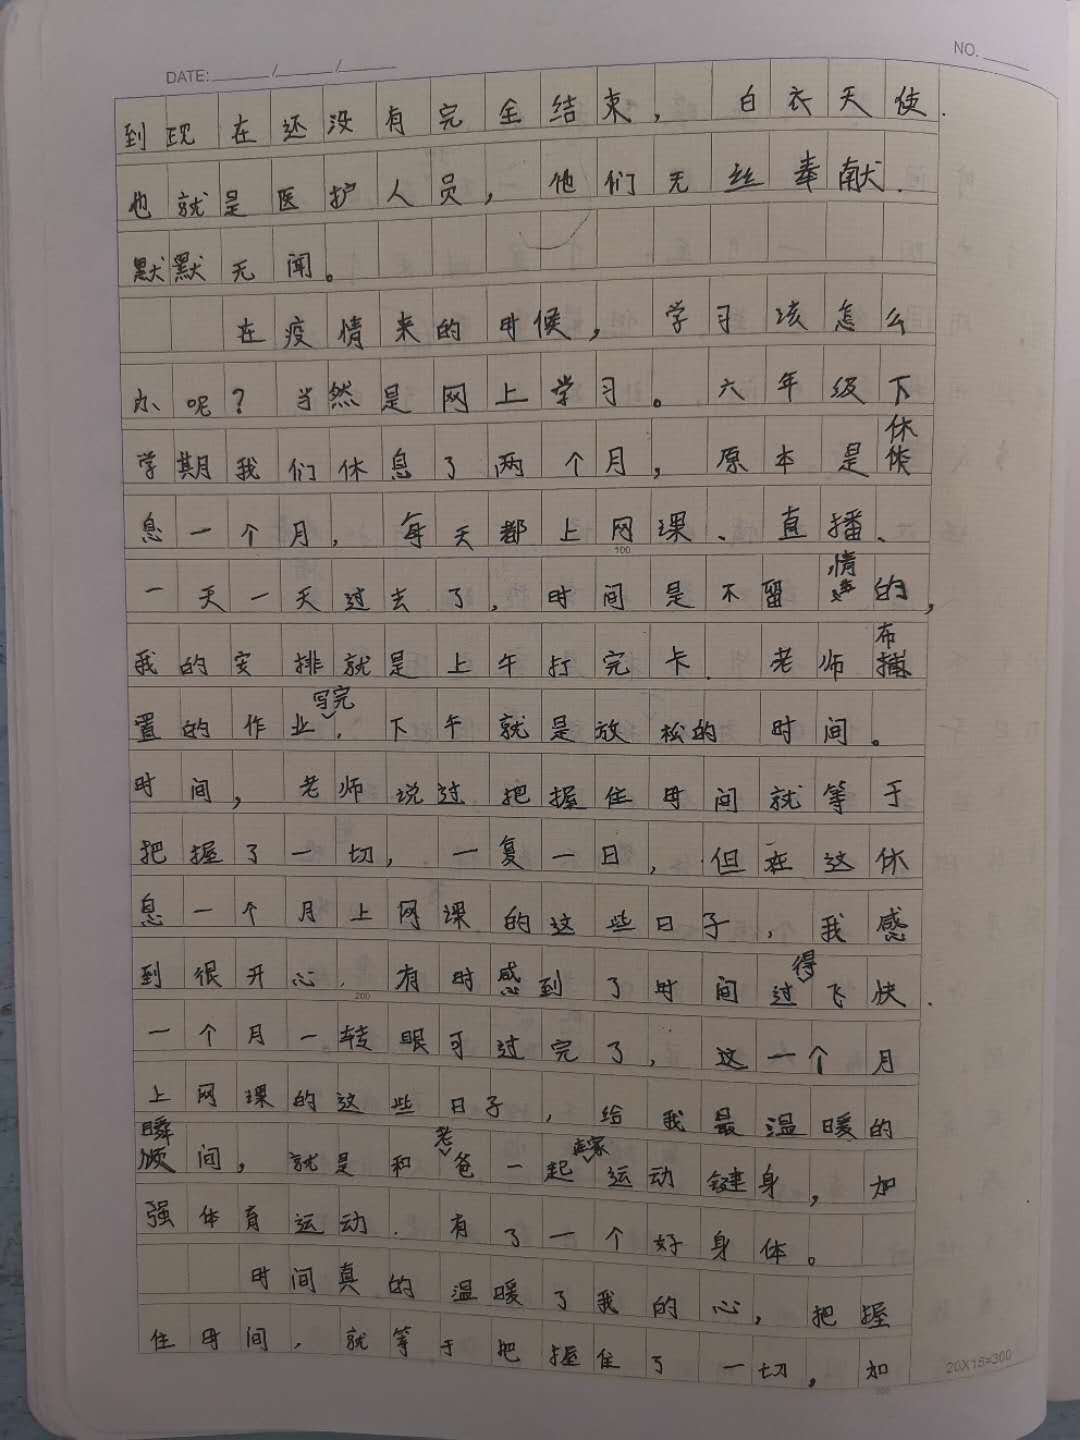 NO.
DATE: / /
到现在还没有完全结束，白衣天使.
也就是医护人员，他们无丝奉献.
默默无闻。
在疫情来的时候，学习该怎么
办呢？当然是网上学习。六年级下
学期我们休息了两个月，原本是休
息一个月，每天都上网课、直播、
一天一天过去了，时间是不留情的，
我的安排就是上午打完卡.老师布
置的作业写完，下午就是放松的时间。
时间，老师说过把握住时间就等于
把握了一切，一复一日，但在这休
息一个月上网课的这些日子，我感
到很开心.有时感到了时间过得飞快.
一个月一转眼可过完了，这一个月
上网课的这些日子，给我最温暖的
瞬间，就是和老爸一起在家运动键身，加
强体育运动.有了一个好身体。
时间真的温暖了我的心，把握
住时间，就等于把握住了一切，如
100
200
300
20X15=300